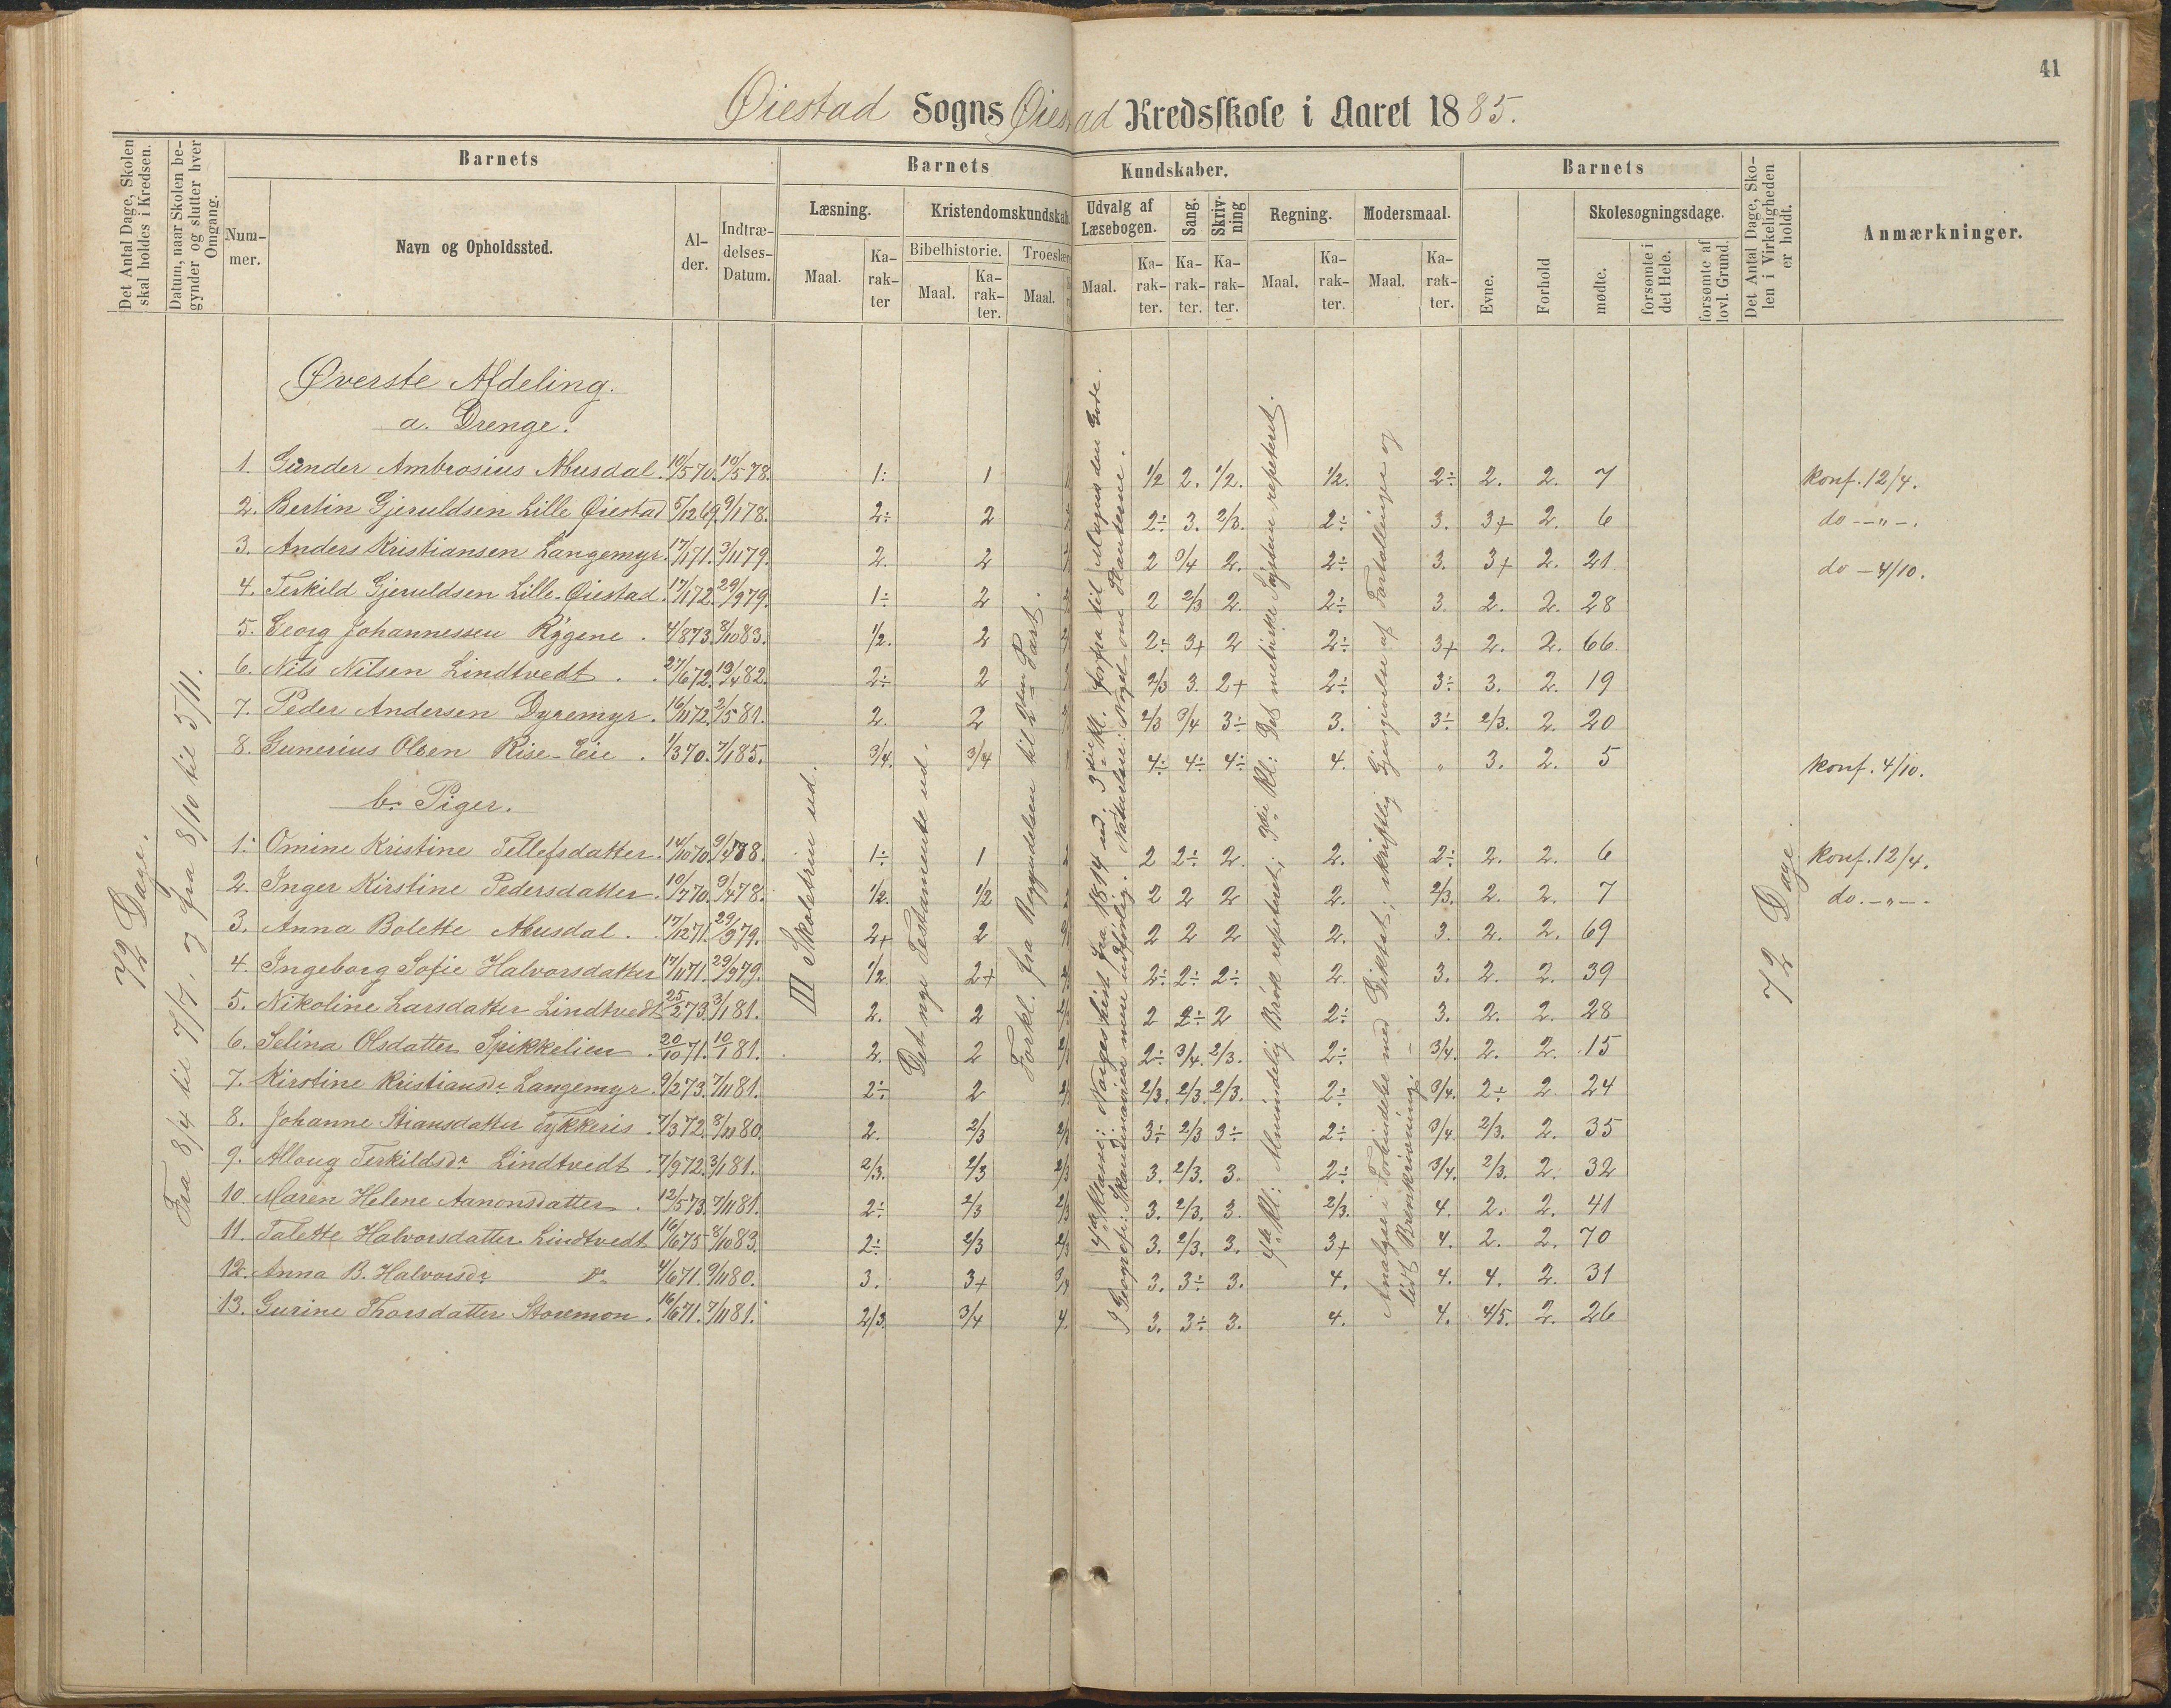 41
Øiestad Sogns Øiestad Kredsskole i Aaret 1885.
Det Antal Dage, Skolen skal holdes i Kredsen.
Datum, naar Skolen begynder og slutter hver Omgang.
Barnets
Nummer.
Navn og Opholdssted.
Alder.
Indtrædelses-Datum.
Barnets Kundskaber.
Læsning.
Maal.
Karakter
Kristendomskundskab
Bibelhistorie.
Maal.
Karakter.
Troeslære
Maal.
Udvalg af Læsebogen.
Maal.
Karakter.
Sang.
Karakter.
Skrivning
Karakter.
Regning.
Maal.
Karakter.
Modersmaal.
Maal.
Karakter.
Barnets
Evne.
Forhold
Skolesøgningsdage.
mødte.
forsømte i det Hele.
forsømte af lovl. Grund.
Det Antal Dage, Skolen i Virkeligheden er holdt.
Anmærkninger.
72 Dage.
Fra 8/4 til 7/7, og fra 8/10 til 5/11.
III Skoletrin ud.
Det nye Testamente ud.
Forkl. fra Begyndelsen til 2den Part.
4de Klasse: Norgeshist. fra 1814 ud. 3die Kl. forfra til Magnus den Gode.
Geografi: Skandinavien mere udførlig. Naturlære: Noget om Planterne.
4de Kl: Almindelig Brøk repeteret; 3die Kl: Det metriske System repeteret.
Analyse i Forbindelse med Diktat; skriftlig Gjengivelse af Fortællinger og
lidt Brevskrivning.
72 Dage.
Øverste Afdeling.
a. Drenge.
1. Gunder Ambrosius Absdal. 10/5 70. 10/5 78. 1: 1 1/2 2. 1/2. 1/2. 2÷ 2. 2. 7 konf. 12/4.
2. Bertin Gjeruldsen Lille Øiestad 5/12 69. 9/1 78. 2÷ 2 2÷ 3. 2/3. 2÷ 3. 3+ 2. 6 do -"-.
3. Anders Kristiansen Langemyr. 17/1 71. 3/11 79. 2. 2 2 3/4 2. 2÷ 3. 3+ 2. 21 do - 4/10.
4. Terkild Gjeruldsen Lille-Øiestad. 17/1 72. 29/9 79. 1÷ 2 2 2/3 2. 2÷ 3. 2. 2. 28
5. Georg Johannessen Rygene. 4/8 73. 8/10 83. 1/2. 2 2÷ 3+ 2 2÷ 3+ 2. 2. 66.
6. Nils Nilsen Lindtvedt. 27/6 72. 19/4 82. 2÷ 2 2/3 3. 2+ 2÷ 3÷ 3. 2. 19
7. Peder Andersen Dyremyr. 16/11 72. 2/5 81. 2. 2 2/3 3/4 3÷ 3. 3÷ 2/3. 2. 20
8. Gunerius Olsen Rise-Eie. 1/3 70. 7/1 85. 3/4. 3/4 4÷ 4÷ 4÷ 4. " 3. 2. 5 konf. 4/10.
b. Piger.
1. Omine Kristine Tellefsdatter. 14/10 70. 9/4 78. 1÷ 1 2 2÷ 2. 2. 2÷ 2. 2. 6 konf. 12/4.
2. Inger Kirstine Pedersdatter. 10/7 70. 9/4 78. 1/2. 1/2 2 2 2 2. 2/3. 2. 2. 7 do. -"-.
3. Anna Bolette Absdal. 17/12 71. 29/9 79. 2+ 2 2 2 2 2. 3. 2. 2. 69
4. Ingeborg Sofie Halvorsdatter 17/11 71. 29/9 79. 1/2 2+ 2÷ 2÷ 2÷ 2. 3. 2. 2. 39
5. Nikoline Larsdatter Lindtvedt 25/2 73. 3/1 81. 2. 2 2 2÷ 2 2÷ 3. 2. 2. 28
6. Selina Olsdatter Spikkelien. 20/10 71. 10/1 81. 2. 2 2÷ 3/4. 2/3. 2÷ 3/4. 2. 2. 15
7. Kirstine Kristiansdr. Langemyr. 9/2 73. 7/11 81. 2÷ 2 2/3. 2/3. 2/3. 2÷ 3/4. 2÷ 2. 24
8. Johanne Stiansdatter Tykkeris. 7/3 72. 3/11 80. 2. 2/3 2/3 3÷ 2/3 3÷ 2÷ 3/4. 2/3. 2. 35
9. Alloug Terkildsdr. Lindtvedt. 7/9 72. 3/1 81. 2/3. 2/3 2/3 3. 2/3. 3. 2÷ 3/4. 2/3. 2. 32
10. Maren Helene Aanonsdatter. 12/5 73. 7/11 81. 2÷ 2/3 2/3 3. 2/3. 3. 2/3. 4. 2. 2. 41
11. Talette Halvorsdatter Lindtvedt 16/6 75 8/10 83. 2÷ 2/3 2/3 3. 2/3. 3. 3+ 4. 2. 2. 70
12. Anna B. Halvorsdr. do. 4/6 71. 9/11 80. 3. 3+ 3/4 3. 3÷ 3. 4. 4. 4. 2. 31
13. Gurine Thorsdatter Storemon. 16/6 71. 7/11 81. 2/3 3/4 4. 3. 3÷ 3. 4. 4. 4/5. 2. 26